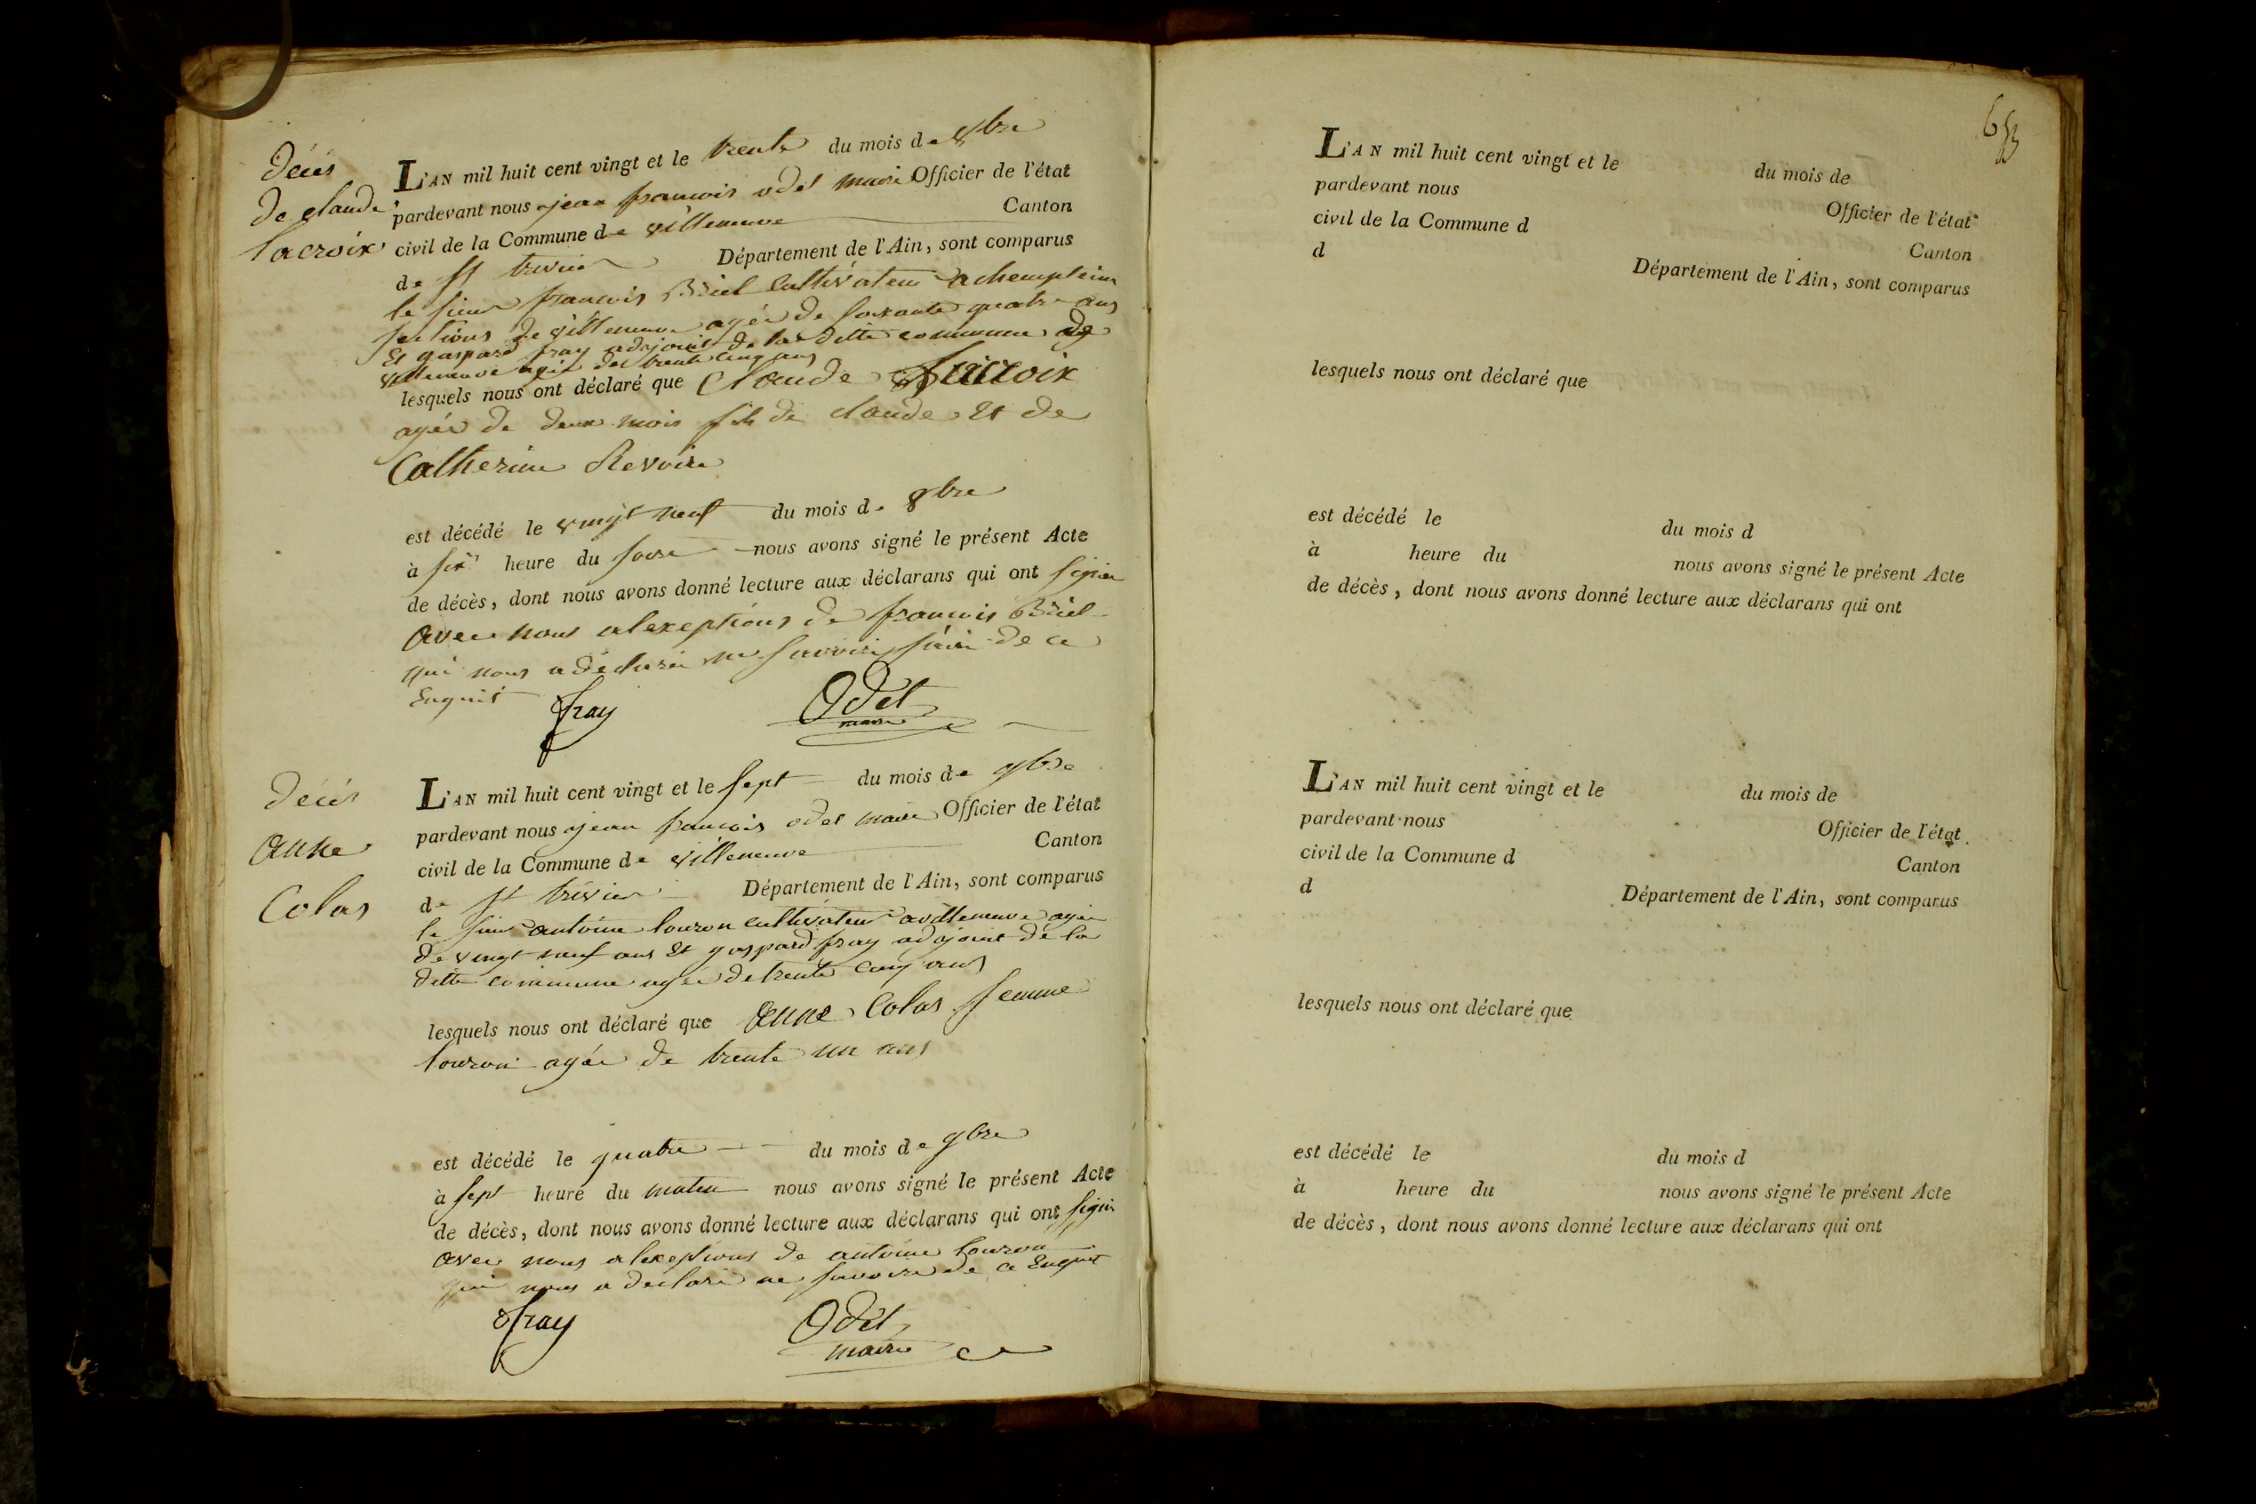 décès
de claude
lacroix
L'AN mil huit cent vingt et le trente du mois de 8bre
pardevant nous jean francois odet maire Officier de l'état
civil de la Commune de villeneuve Canton
de st trivier Département de l'Ain, sont comparus
le sieur francois Briel Cultivateur a
sections de villeneuve agée de soixante quatre ans
Et gaspard fray adajoint de la ditte commune de
villeneuve agée de trente cinq ans
lesquels nous ont déclaré que Claude Lacroix
agée de deux mois fils de claude Et de
Catherine Revoire
est décédé le vingt neuf du mois d. 8bre
à six heure du soire nous avons signé le présent Acte
de décès, dont nous avons donné lecture aux déclarans qui ont signée
avec nous alexeptions de francois Briel
qui nous a déclarée ne savoire faire de ce
Enquit
fray
Odet
maire
décès
anne
Colas
L'AN mil huit cent vingt et le sept du mois de 9bre
pardevant nous jean francois odet maire Officier de l'état
civil de la Commune de villeneuve Canton
de st trivier Département de l'Ain, sont comparus
le sieur antoine louron cultivateur avilleneuve agée
de vingt neuf ans Et gaspard fray adajoint de la
ditte commune agée de trente cinq ans
lesquels nous ont déclaré que anne Colas femme
louron agée de trente un ans
est décédé le quatre du mois de 9bre
à sept heure du matin nous avons signé le présent Acte
de décès, dont nous avons donné lecture aux déclarans qui ont signée
avec nous alexeptions de antoine louron
qui nous a declaré ne savoire de ce Enquit
fray
Odet
maire
L'AN mil huit cent vingt et le du mois de
pardevant nous Officier de l'état
civil de la Commune d Canton
d Département de l'Ain, sont comparus
lesquels nous ont déclaré que
est décédé le du mois d
à heure du nous avons signé le présent Acte
de décès, dont nous avons donné lecture aux déclarans qui ont
L'AN mil huit cent vingt et le du mois de
pardevant nous Officier de l'état
civil de la Commune d Canton
d Département de l'Ain, sont comparus
lesquels nous ont déclaré que
est décédé le du mois d
à heure du nous avons signé le présent Acte
de décès, dont nous avons donné lecture aux déclarans qui ont